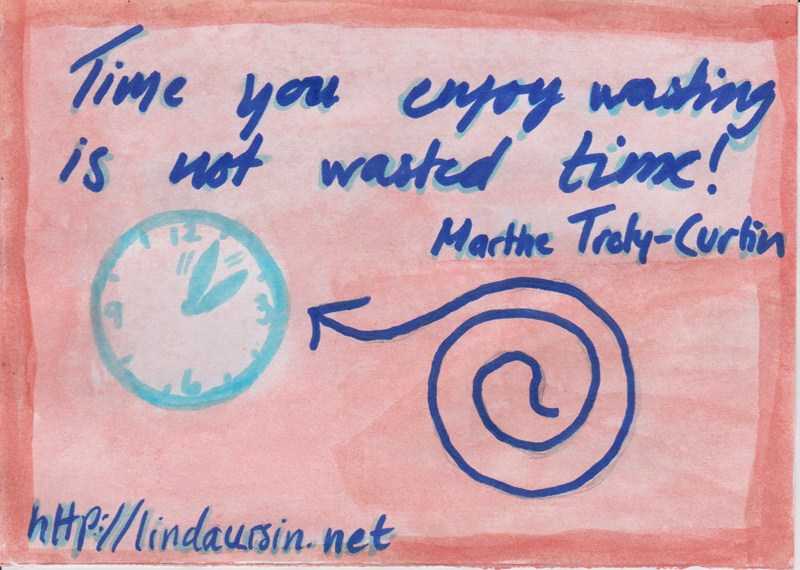 Time you enjoy wasting
is not wasted time!
Marthe Troly-Curtin
12
9
3
6
http://lindaursin.net